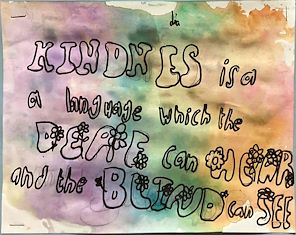 KINDNES is a
a language which the
DEAF can HEAR
and the BLIND can SEE